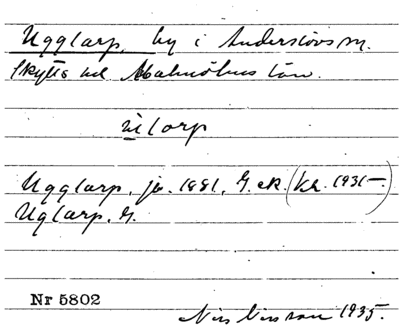 Ugglarp, by i Anderslövs sn.
Skytts hd Malmöhus län.
Ugglarp, ja. 1881, G.ek. (Kr. 1931–)
Uglarp. G.
Nr 5802
Nils Nilsson 1935.